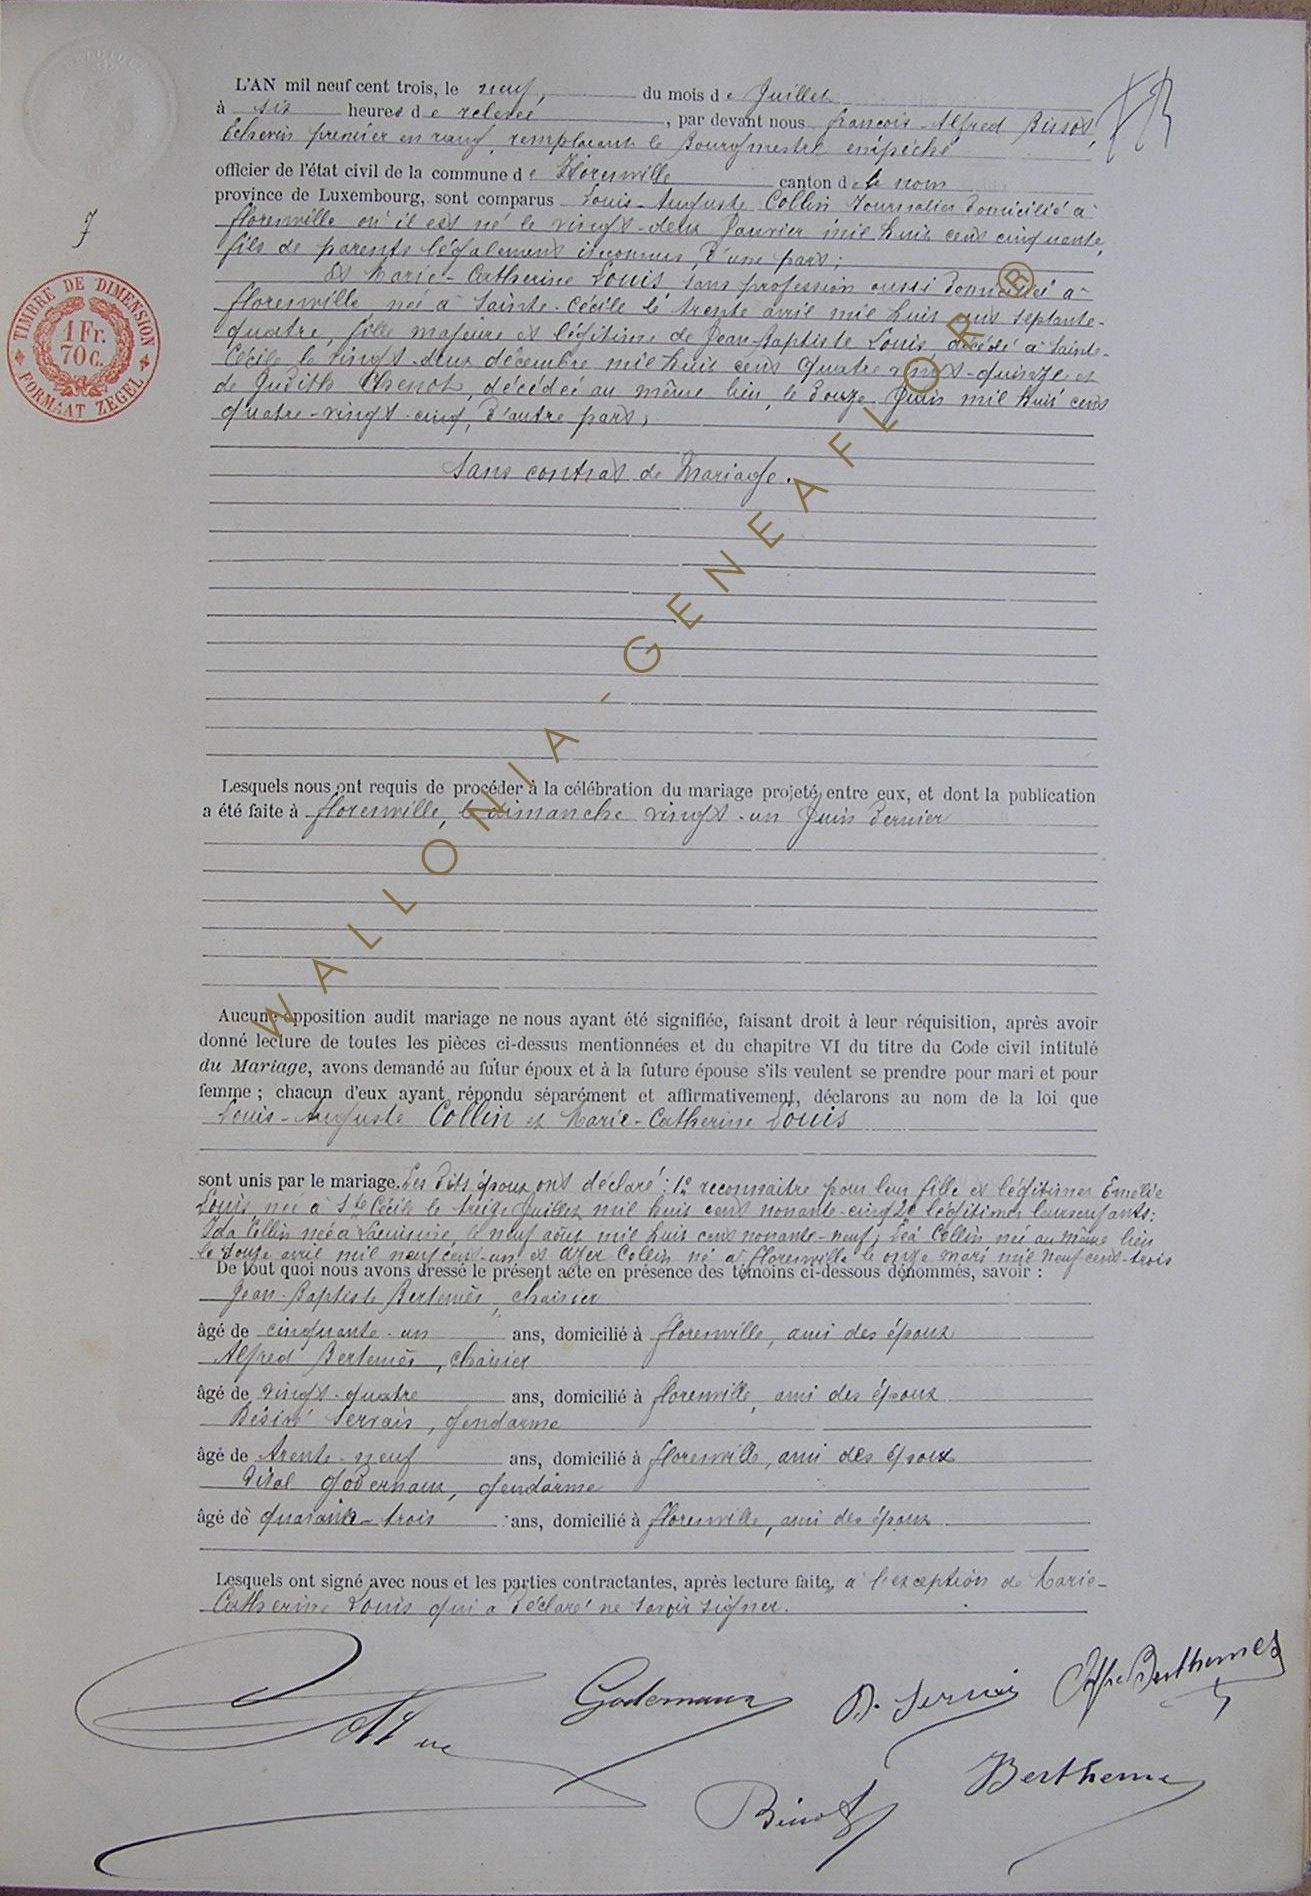 L'AN mil neuf cent trois, le neuf, du mois de Juillet
à six heures de relevée, par devant nous François-Alfred Binsot,
Echevin premier en rang, remplaçant le Bourgmestre empêché
officier de l'état civil de la commune de Florenville canton de ce nom
province de Luxembourg, sont comparus Louis-Auguste Collin Journalier domicilié à
Florenville où il est né le vingt-deux Janvier mil huit cent cinquante,
fils de parents légalement inconnus, d'une part;
Et Marie-Catherine Louis sans profession aussi domiciliée à
Florenville née à Sainte-Cécile le trente avril mil huit cent septante-
quatre, fille majeure et légitime de Jean-Baptiste Louis, décédé à Sainte-
Cécile le vingt-deux décembre mil huit cent quatre vingt-quinze et
de Judith Chenot, décédée au même lieu, le douze Juin mil huit cent
quatre-vingt-cinq, d'autre part,
Sans contrat de Mariage.
7
TIMBRE DE DIMENSION
1 Fr.
70 C.
FORMAAT ZEGEL
Lesquels nous ont requis de procéder à la célébration du mariage projeté entre eux, et dont la publication
a été faite à Florenville, le dimanche vingt-un Juin dernier
WALLONIA-GENEAFLOR®
Aucune opposition audit mariage ne nous ayant été signifiée, faisant droit à leur réquisition, après avoir
donné lecture de toutes les pièces ci-dessus mentionnées et du chapitre VI du titre du Code civil intitulé
du Mariage, avons demandé au futur époux et à la future épouse s'ils veulent se prendre pour mari et pour
femme ; chacun d'eux ayant répondu séparément et affirmativement, déclarons au nom de la loi que
Louis-Auguste Collin et Marie-Catherine Louis
sont unis par le mariage. Les dits époux ont déclaré: 1° reconnaitre pour leur fille et légitimer Emélie
Louis née à Ste Cécile le treize Juillet mil huit cent nonante-cinq 2° légitimer leurs enfants:
Ida Collin née à Lacuisine, le neuf août mil huit cent nonante-neuf; Léa Collin née au même lieu
le douze avril mil neuf cent-un et Azer Collin né à Florenville le onze mars mil neuf cent-trois
De tout quoi nous avons dressé le présent acte en présence des témoins ci-dessous dénommés, savoir :
Jean-Baptiste Bertemès, chaisier
âgé de cinquante-un ans, domicilié à Florenville, ami des époux
Alfred Bertemès, chaisier
âgé de vingt-quatre ans, domicilié à Florenville, ami des époux
Désiré Servais, gendarme
âgé de trente-neuf ans, domicilié à Florenville, ami des époux
Vital Godernaux, gendarme
âgé de quarante-trois ans, domicilié à Florenville, ami des époux
Lesquels ont signé avec nous et les parties contractantes, après lecture faite, à l'exception de Marie-
Catherine Louis qui a déclaré ne savoir signer.
Godernaux D. Servais Alfre Berthemes
Berthemes